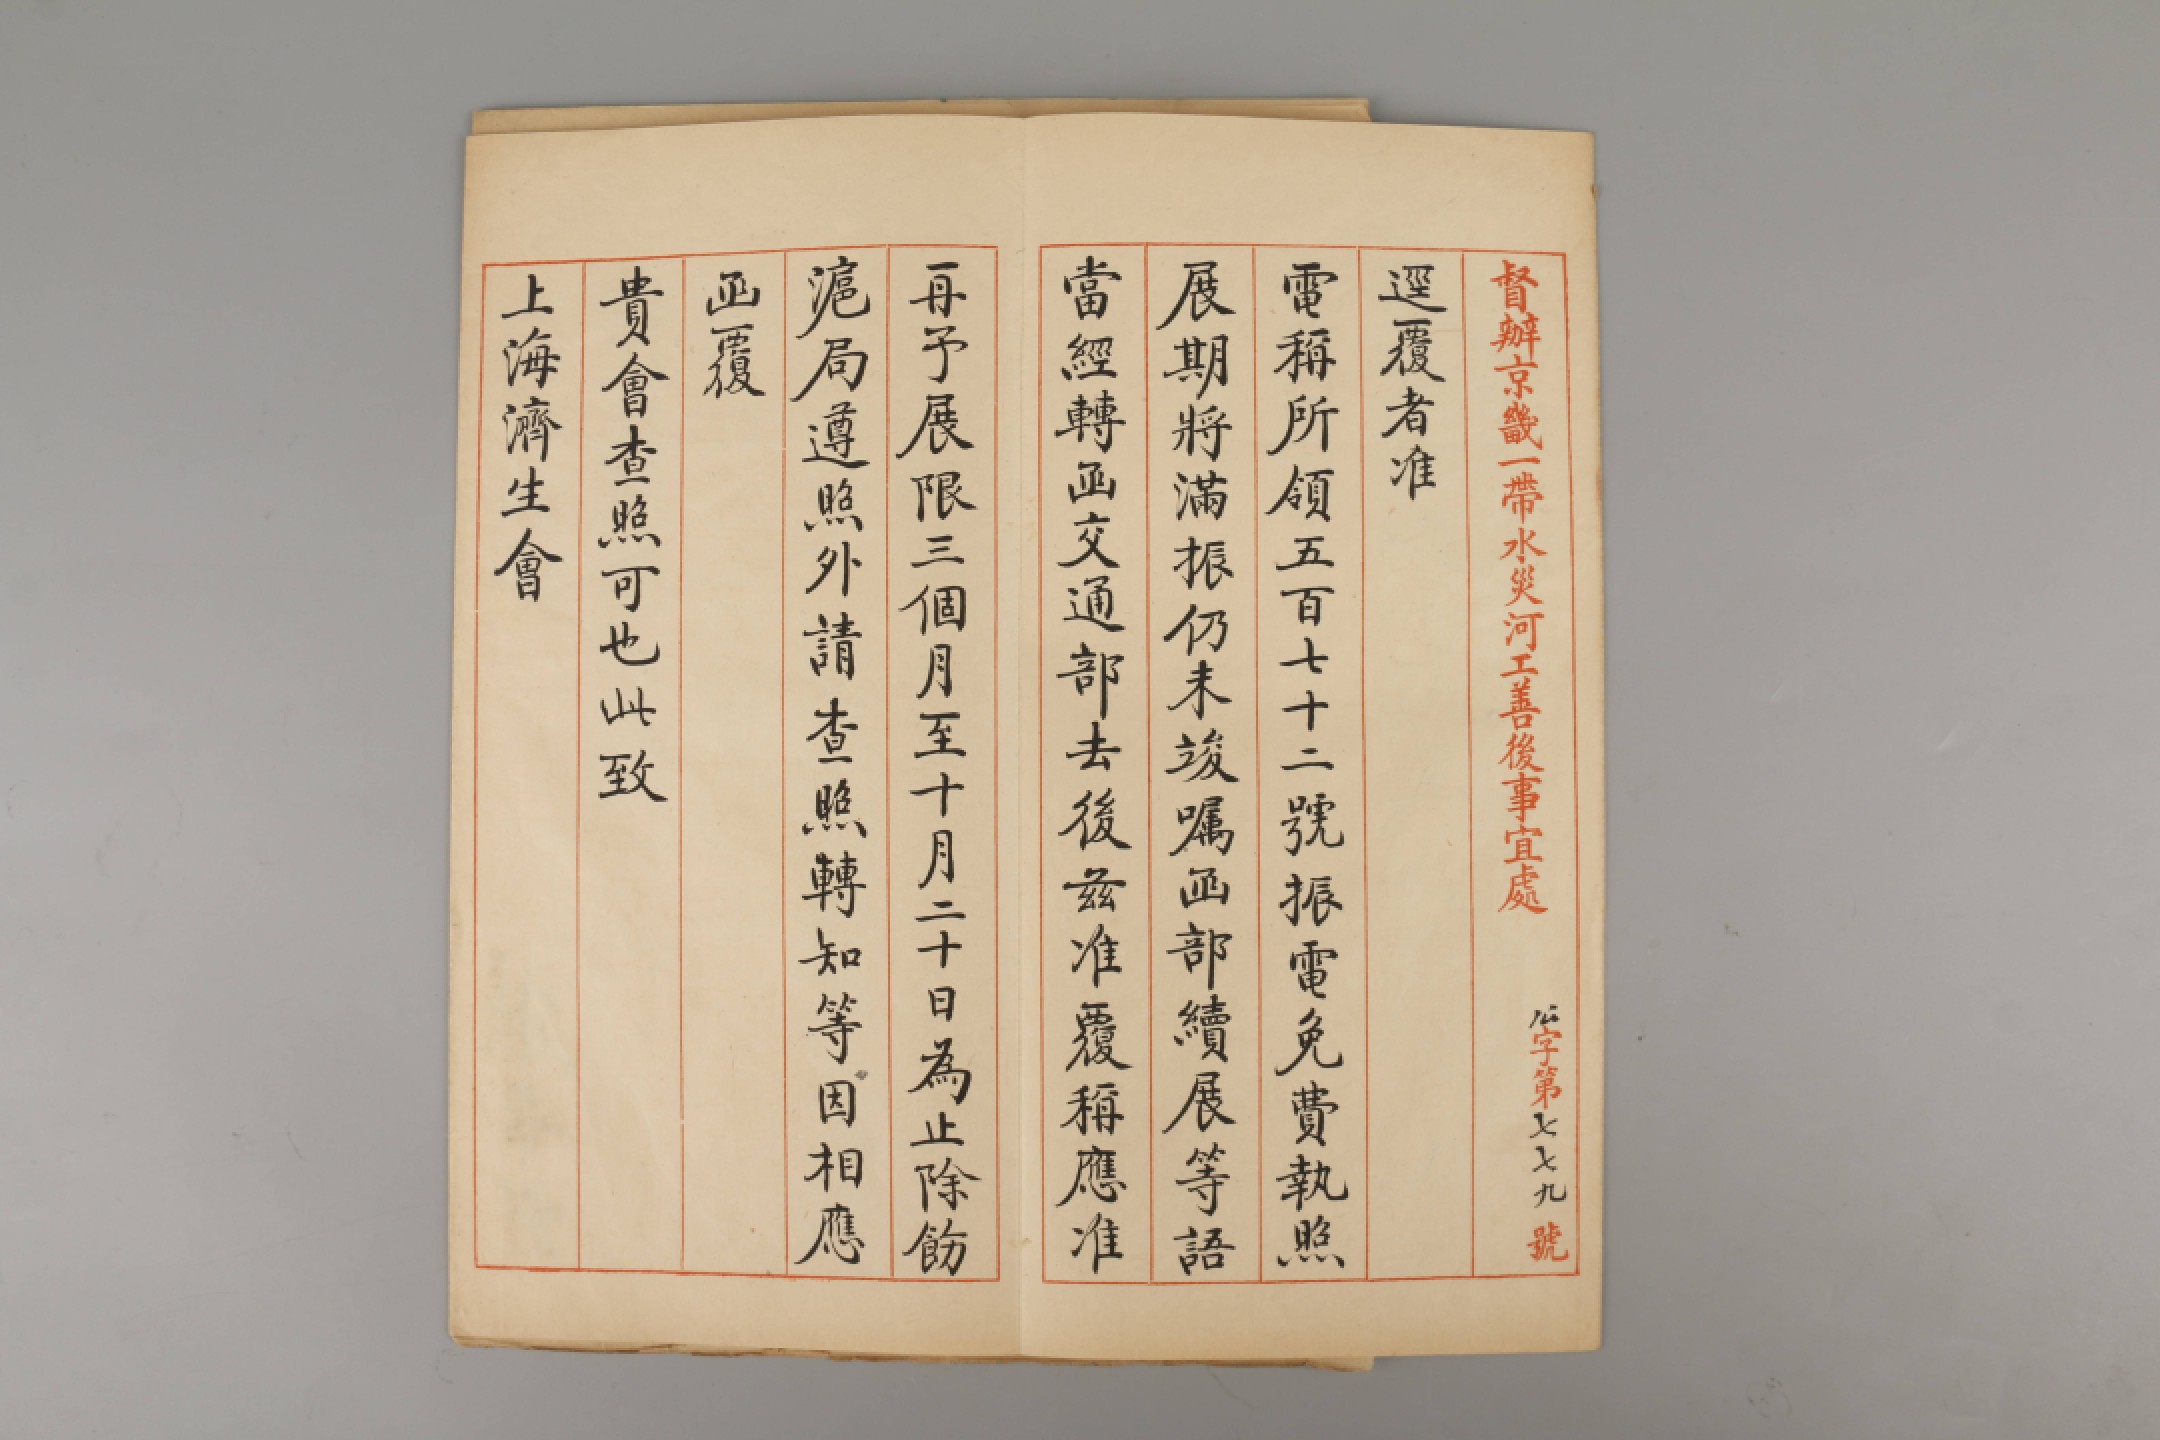 督辦京畿一帶水災河工善後事宜處 公字第七七九號
逕覆者准
電稱所領五百七十二號振電免費執照
展期將滿振仍未竣囑函部續展等語
當經轉函交通部去後茲准覆稱應准
再予展限三個月至十月二十日為止除飭
滬局遵照外請查照轉知等因相應
函覆
貴會查照可也此致
上海濟生會